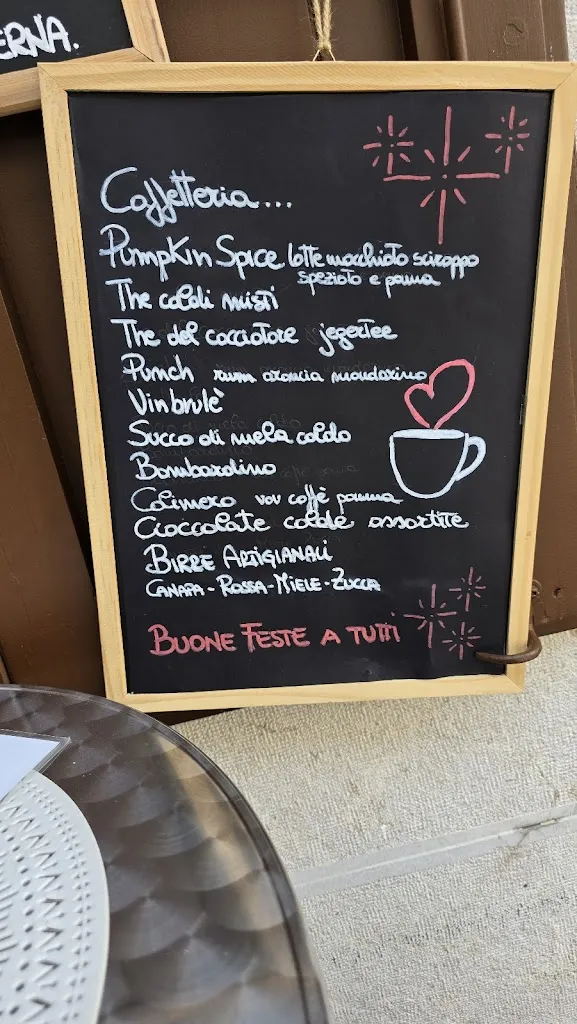 ERNA.
Caffetteria...
Pumpkin Spice latte macchiato sciroppo
speziato e panna
The caldi misti
The del cacciatore jegertee
Punch rum arancia mandarino
Vin brulè
Succo di mela caldo
Bombardino
Calimero vov caffè panna
Cioccolate calde assortite
BIRRE ARTIGIANALI
CANAPA - ROSSA - MIELE - ZUCCA
BUONE FESTE A TUTTI